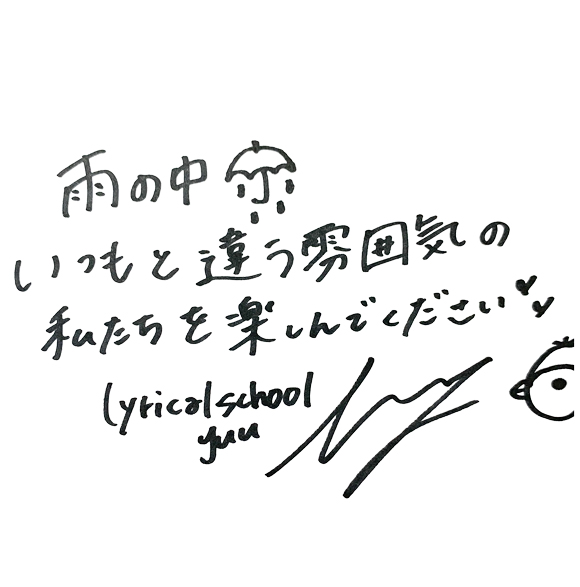 雨の中
いつもと違う雰囲気の
私たちを楽しんでください
lyrical school
yuu